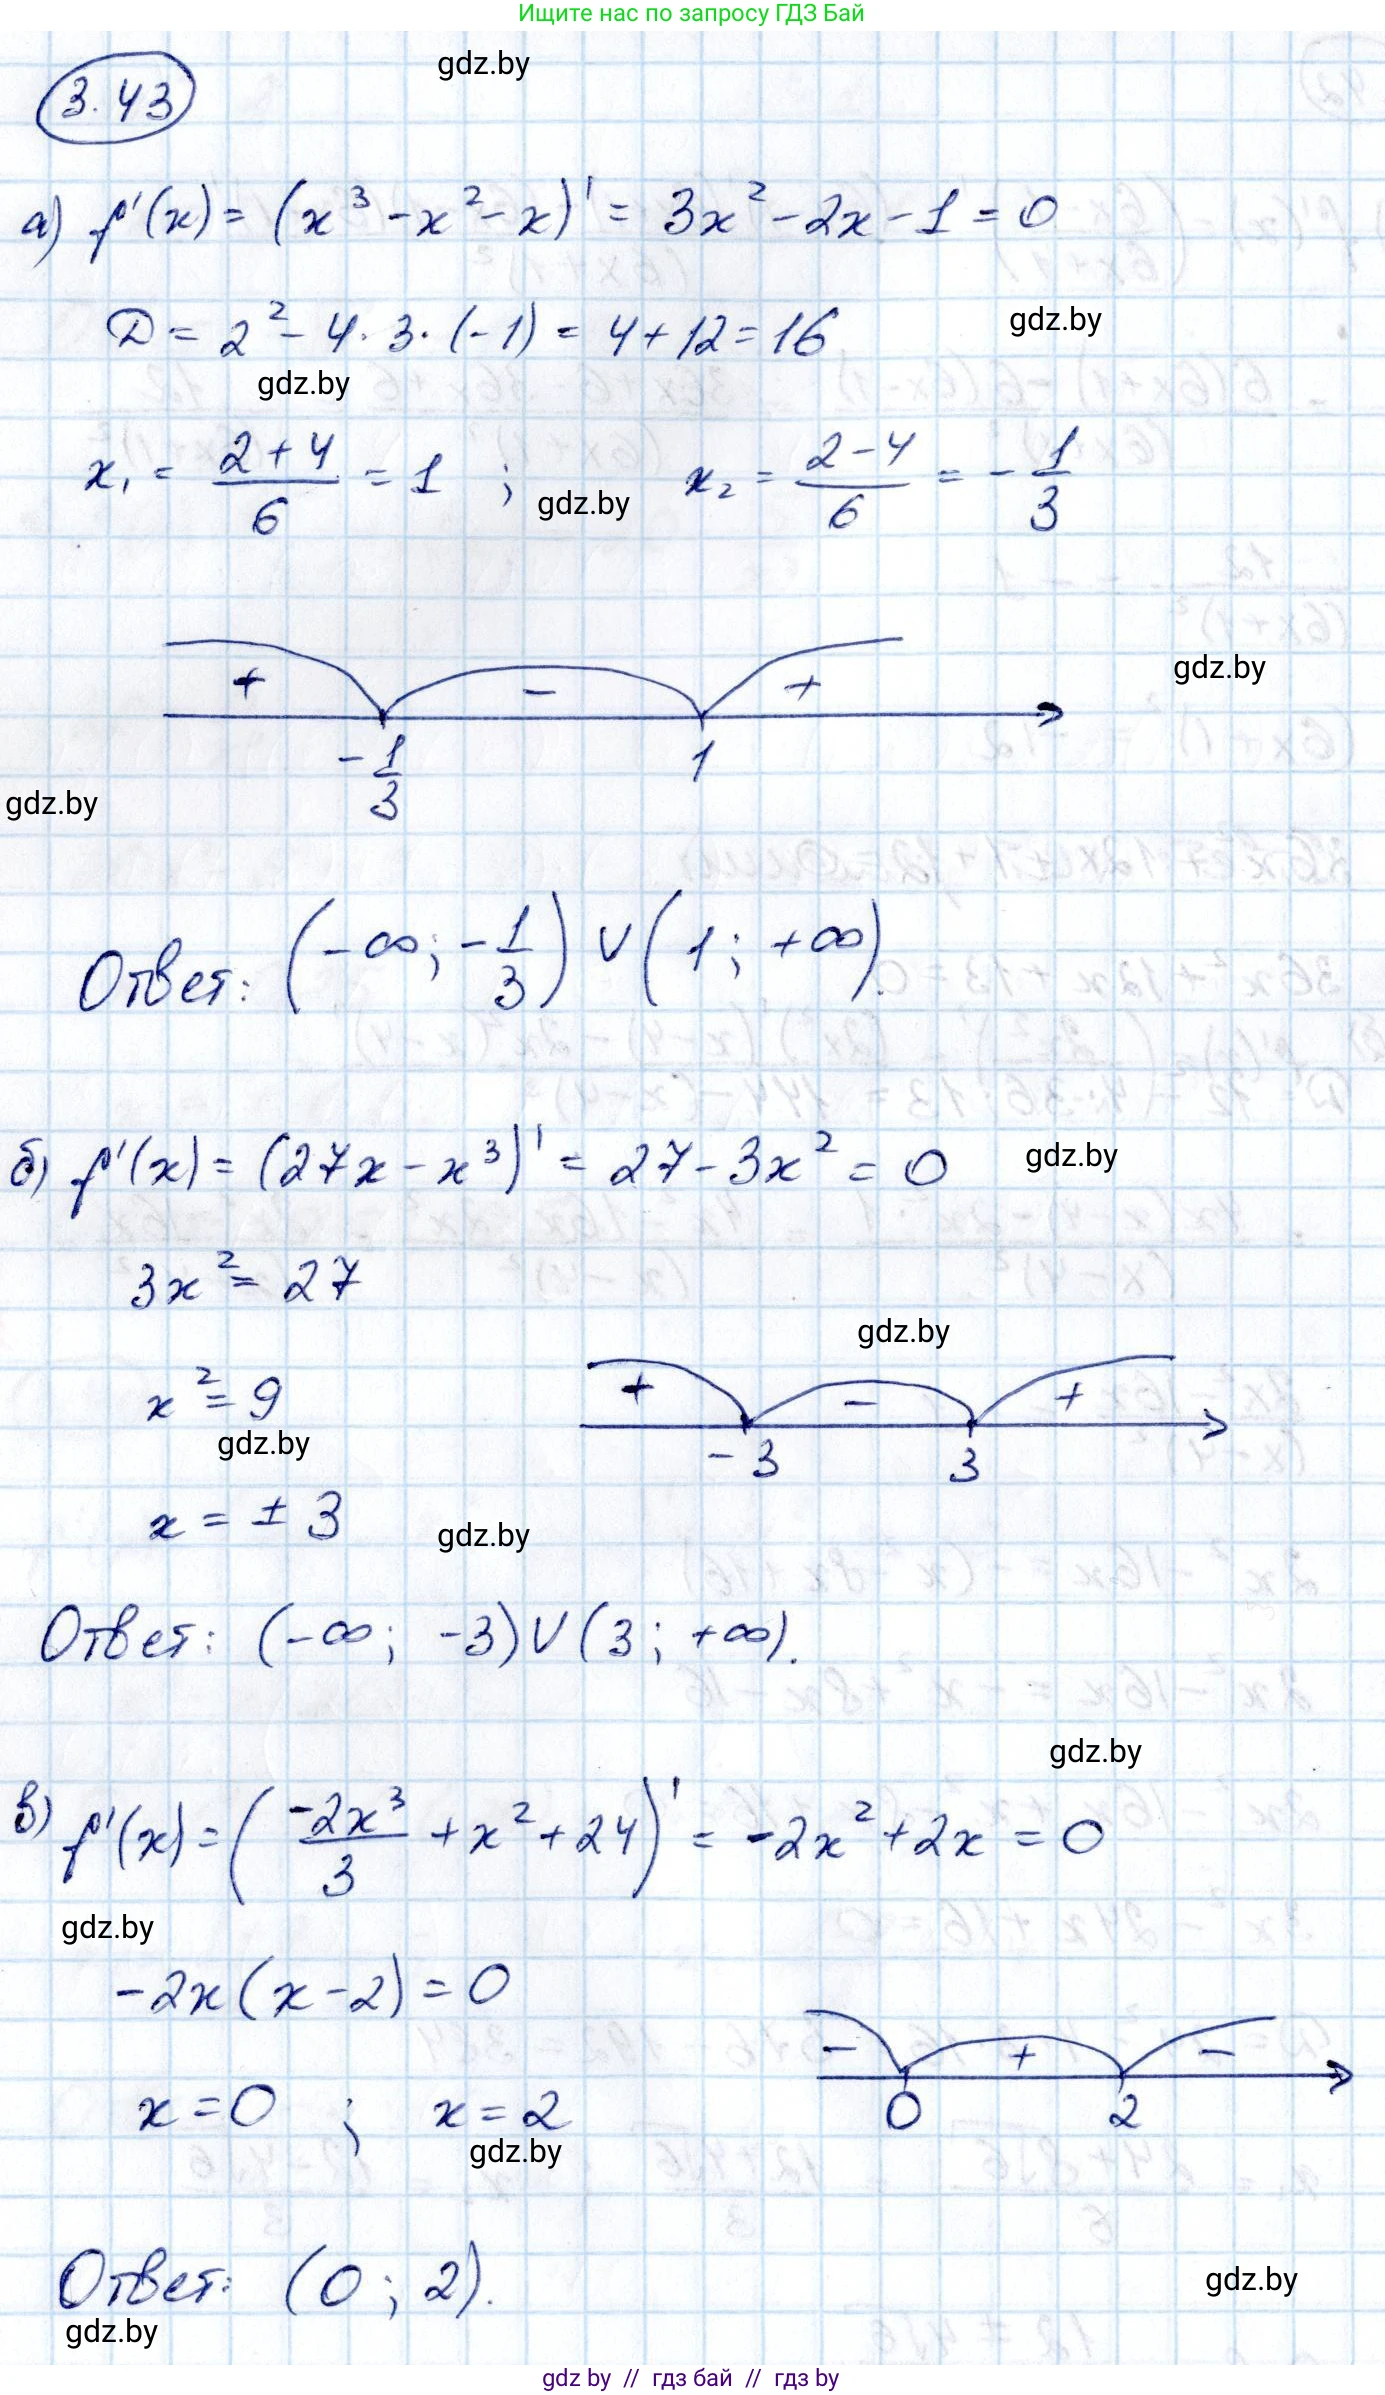 Ищите нас по запросу ГДЗ Бай
gdz.by
3.43
а) f'(x) = (x³ - x² - x)' = 3x² - 2x - 1 = 0
D = 2² - 4 · 3 · (-1) = 4 + 12 = 16
gdz.by
gdz.by
x₁ = (2 + 4)/6 = 1 ; x₂ = (2 - 4)/6 = - 1/3
gdz.by
gdz.by
+ - +
-1/3 1
gdz.by
Ответ: (-∞; -1/3) ∪ (1; +∞).
б) f'(x) = (27x - x³)' = 27 - 3x² = 0
gdz.by
3x² = 27
gdz.by
x² = 9
+ - +
gdz.by
-3 3
x = ± 3
gdz.by
Ответ: (-∞; -3) ∪ (3; +∞).
gdz.by
в) f'(x) = (-2x³/3 + x² + 24)' = -2x² + 2x = 0
gdz.by
-2x(x - 2) = 0
- + -
x = 0 ; x = 2
0 2
gdz.by
Ответ: (0; 2).
gdz.by
gdz.by
gdz by // гдз бай // гдз by